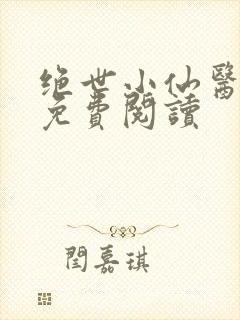 绝世小仙醫
免費閱讀
閆嘉琪